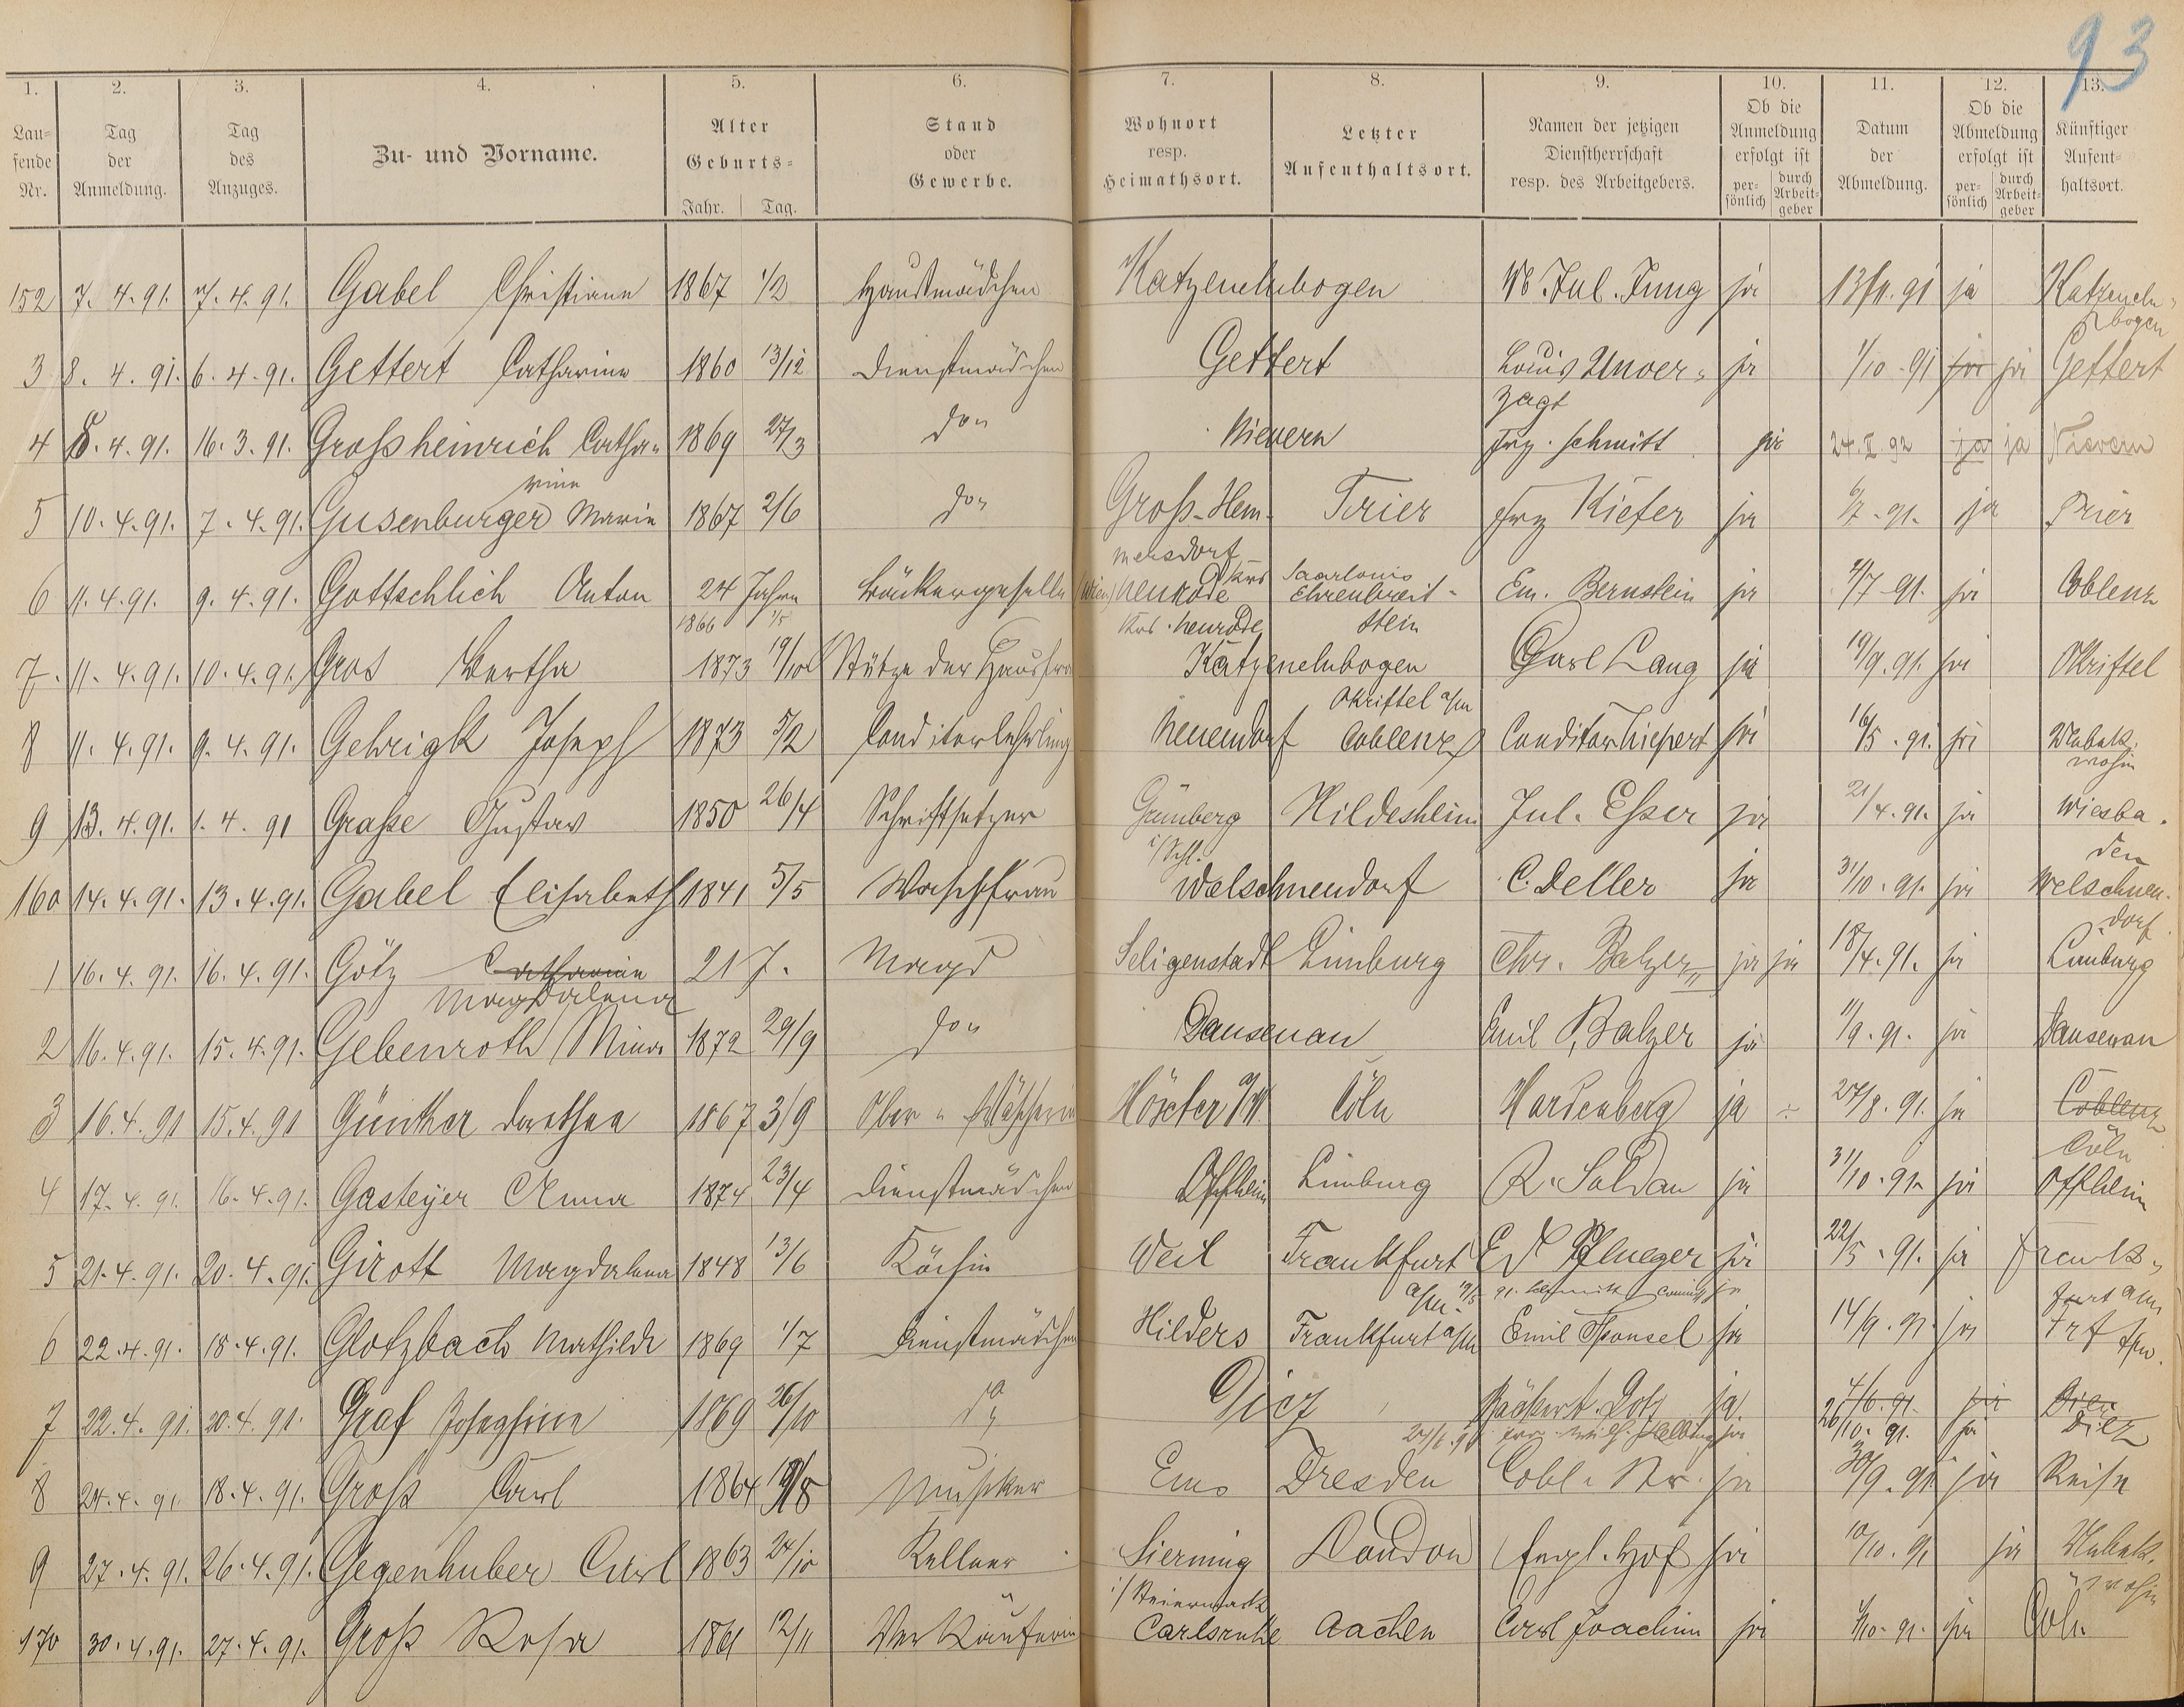 93
1. 2. 3. 4. 5. 6. 7. 8. 9. 10. 11. 12. 13.
Lau-
fende
Nr.
Tag
der
Anmeldung.
Tag
des
Anzuges.
Zu- und Vorname.
Alter
Geburts-
Jahr. Tag.
Stand
oder
Gewerbe.
Wohnort
resp.
Heimathsort.
Letzter
Aufenthaltsort.
Namen der jetzigen
Dienstherrschaft
resp. des Arbeitgebers.
Ob die
Anmeldung
erfolgt ist
per-
sönlich
durch
Arbeit-
geber
Datum
der
Abmeldung.
Ob die
Abmeldung
erfolgt ist
per-
sönlich
durch
Arbeit-
geber
Künftiger
Aufent-
haltsort.
152 7. 4. 91. 7. 4. 91. Gabel Christiane 1867 1/2 Hausmädchen Katzenelnbogen Wb. Jul. Jung ja 13/11. 91 ja Katzeneln-
bogen
3 8. 4. 91. 6. 4. 91. Gettert Catharine 1860 13/12 Dienstmädchen Gettert Louis Unver- ja 1/10. 91 ja ja Gettert
zagt
4 8. 4. 91. 16. 3. 91. Großheinrich Catha- 1869 27/3 do Nievern Frz. Schmitt ja 24. II. 92 ja ja Nievern
rine
5 10. 4. 91. 7. 4. 91. Gusenburger Marie 1867 2/6 do Groß-Hem- Trier Frz Kiefer ja 6/7. 91. ja Trier
mersdorf
Krs Saarlouis
6 11. 4. 91. 9. 4. 91. Gottschlich Anton 24 Jahre Bäckergeselle Neurode Ehrenbreit- Em. Bernstein ja 2/7 91. ja Coblenz
1866 1/5 Krs. Neurode stein
7. 11. 4. 91. 10. 4. 91. Gros Bertha 1873 19/10 Stütze der Hausfrau Katzenelnbogen Carl Lang ja 19/9. 91. ja Okriftel
Okriftel a/m
8 11. 4. 91. 9. 4. 91. Gehrigk Joseph 1873 5/2 Conditorlehrling Neuendorf Coblenz Conditor ja 16/5. 91. ja Unbek.
wohin
9 13. 4. 91. 1. 4. 91 Graße Gustav 1850 26/4 Schriftsetzer Grünberg Hildesheim Jul. Eßer ja 21/4. 91. ja Wiesba.
i/Schl. den
160 14. 4. 91. 13. 4. 91. Gabel Elisabeth 1841 5/5 Waschfrau Welschneudorf C. Deller ja 31/10. 91. ja Welschneu-
dorf
1 16. 4. 91. 16. 4. 91. Götz Catharine 21 J. Magd Seligenstadt Limburg Chr. Balzer ja ja 18/4. 91. ja Limburg
Magdalena
2 16. 4. 91. 15. 4. 91. Gebenroth Mina 1872 29/9 do Dausenau Emil P. Balzer ja 1/9. 91. ja Dausenau
3 16. 4. 91 15. 4. 91 Günther Dorthea 1867 3/9 Ober - Höxter a/W Cöln Hardenberg ja ÷ 27/8. 91. ja Coblenz
Cöln
4 17. 4. 91. 16. 4. 91. Gasteyer Anna 1874 23/4 Dienstmädchen Offheim Limburg R. Soldan ja 31/10. 91. ja Offheim
5 21. 4. 91. 20. 4. 91. Girott Magdalena 1848 13/6 Köchin Weil Frankfurt Ed Pflueger ja 22/5. 91. ja Frank-
a/M. furt a/m
6 22. 4. 91. 18. 4. 91. Glotzbach Mathilde 1869 1/7 Dienstmädchen Hilders Frankfurt a/M Emil Sponsel ja 14/9. 91. ja Frf
7 22. 4. 91. 20. 4. 91. Graf Josephine 1869 26/10 do Diez ja 4/6. 91. ja Diez
26/10. 91. ja Diez
8 24. 4. 91 18. 4. 91. Groß Carl 1864 Musiker Ems Dresden Cobl. Str. ja 30/9. 91 ja Reise
9 27. 4. 91. 26. 4. 91. Gegenhuber Carl 1863 24/10 Kellner Sierning London Engl. Hof ja 10/10. 91 ja Unbek.
i/Steiermark wohin
170 30. 4. 91. 27. 4. 91. Groß Rosa 1861 12/11 Verkäuferin Carlsruhe Aachen Carl Joachim ja 1/10. 91. ja Cöln.